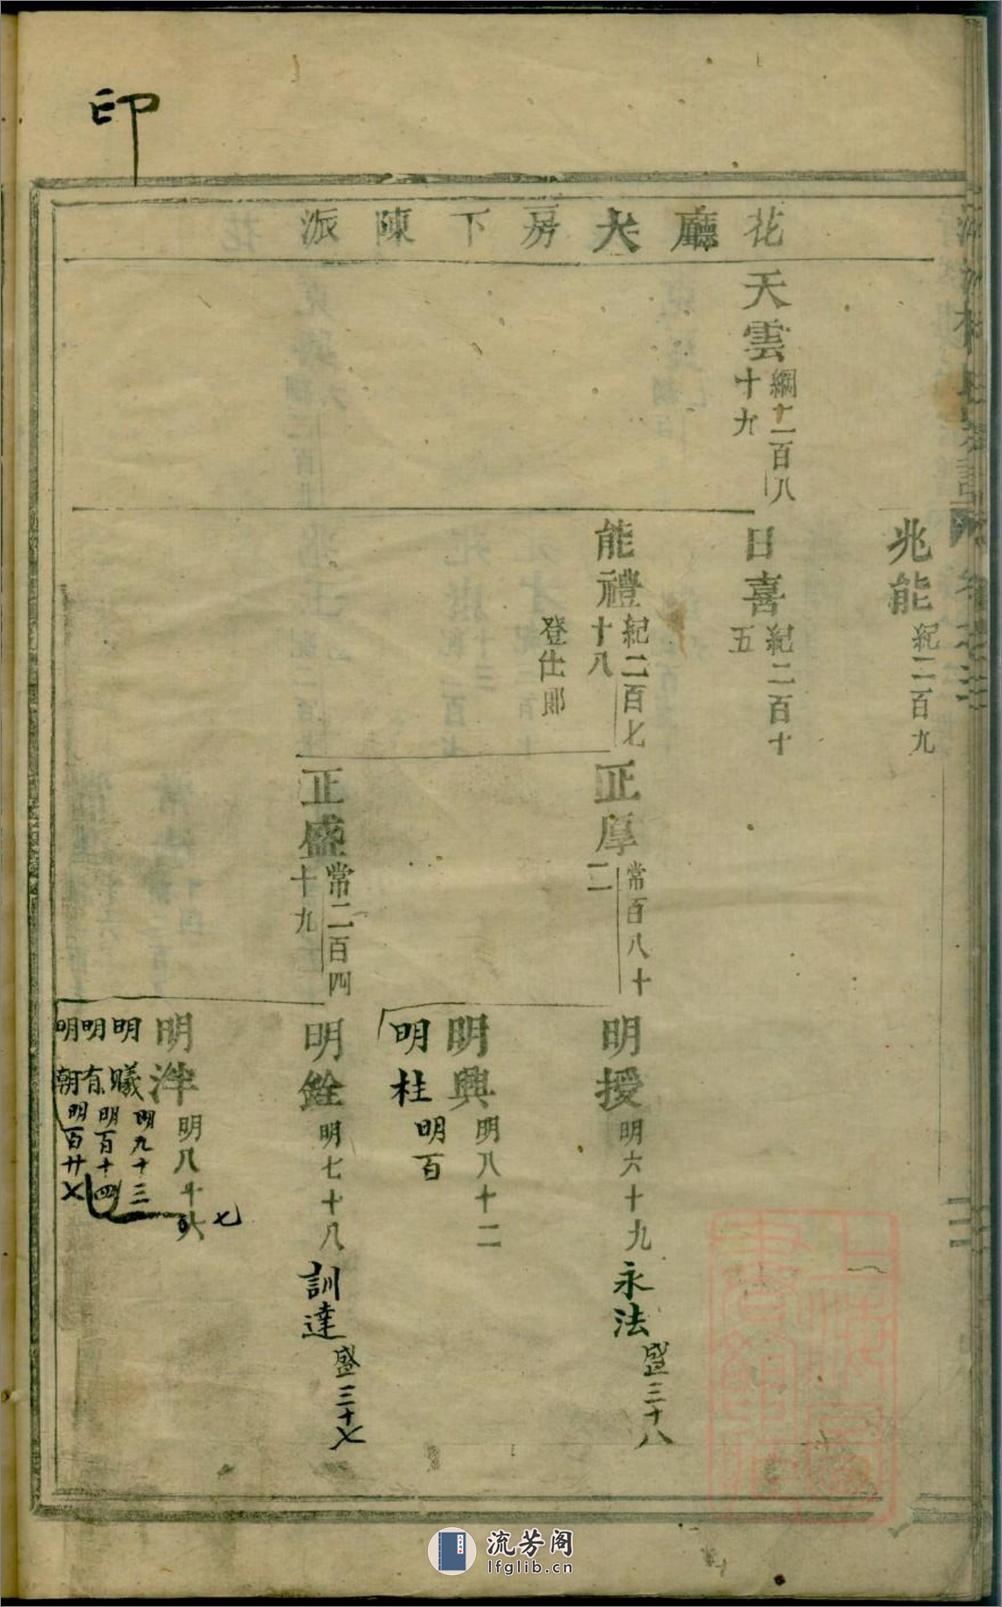 印
花廳大房下陳派
天雲
綱十一百八
十九
兆能
紀二百九
日喜
紀二百十
五
能禮
紀二百七
十八
登仕郎
正厚
常百八十
二
正盛
常二百四
十九
明授
明六十九
永法
盛三十八
明興
明八十二
明柱
明百
明銓
明七十八
訓達
盛三十七
明泮
明八十六
七
明曦
明九十三
明有
明百十四
明朝
明百廿七
流芳阁
lfglib.cn